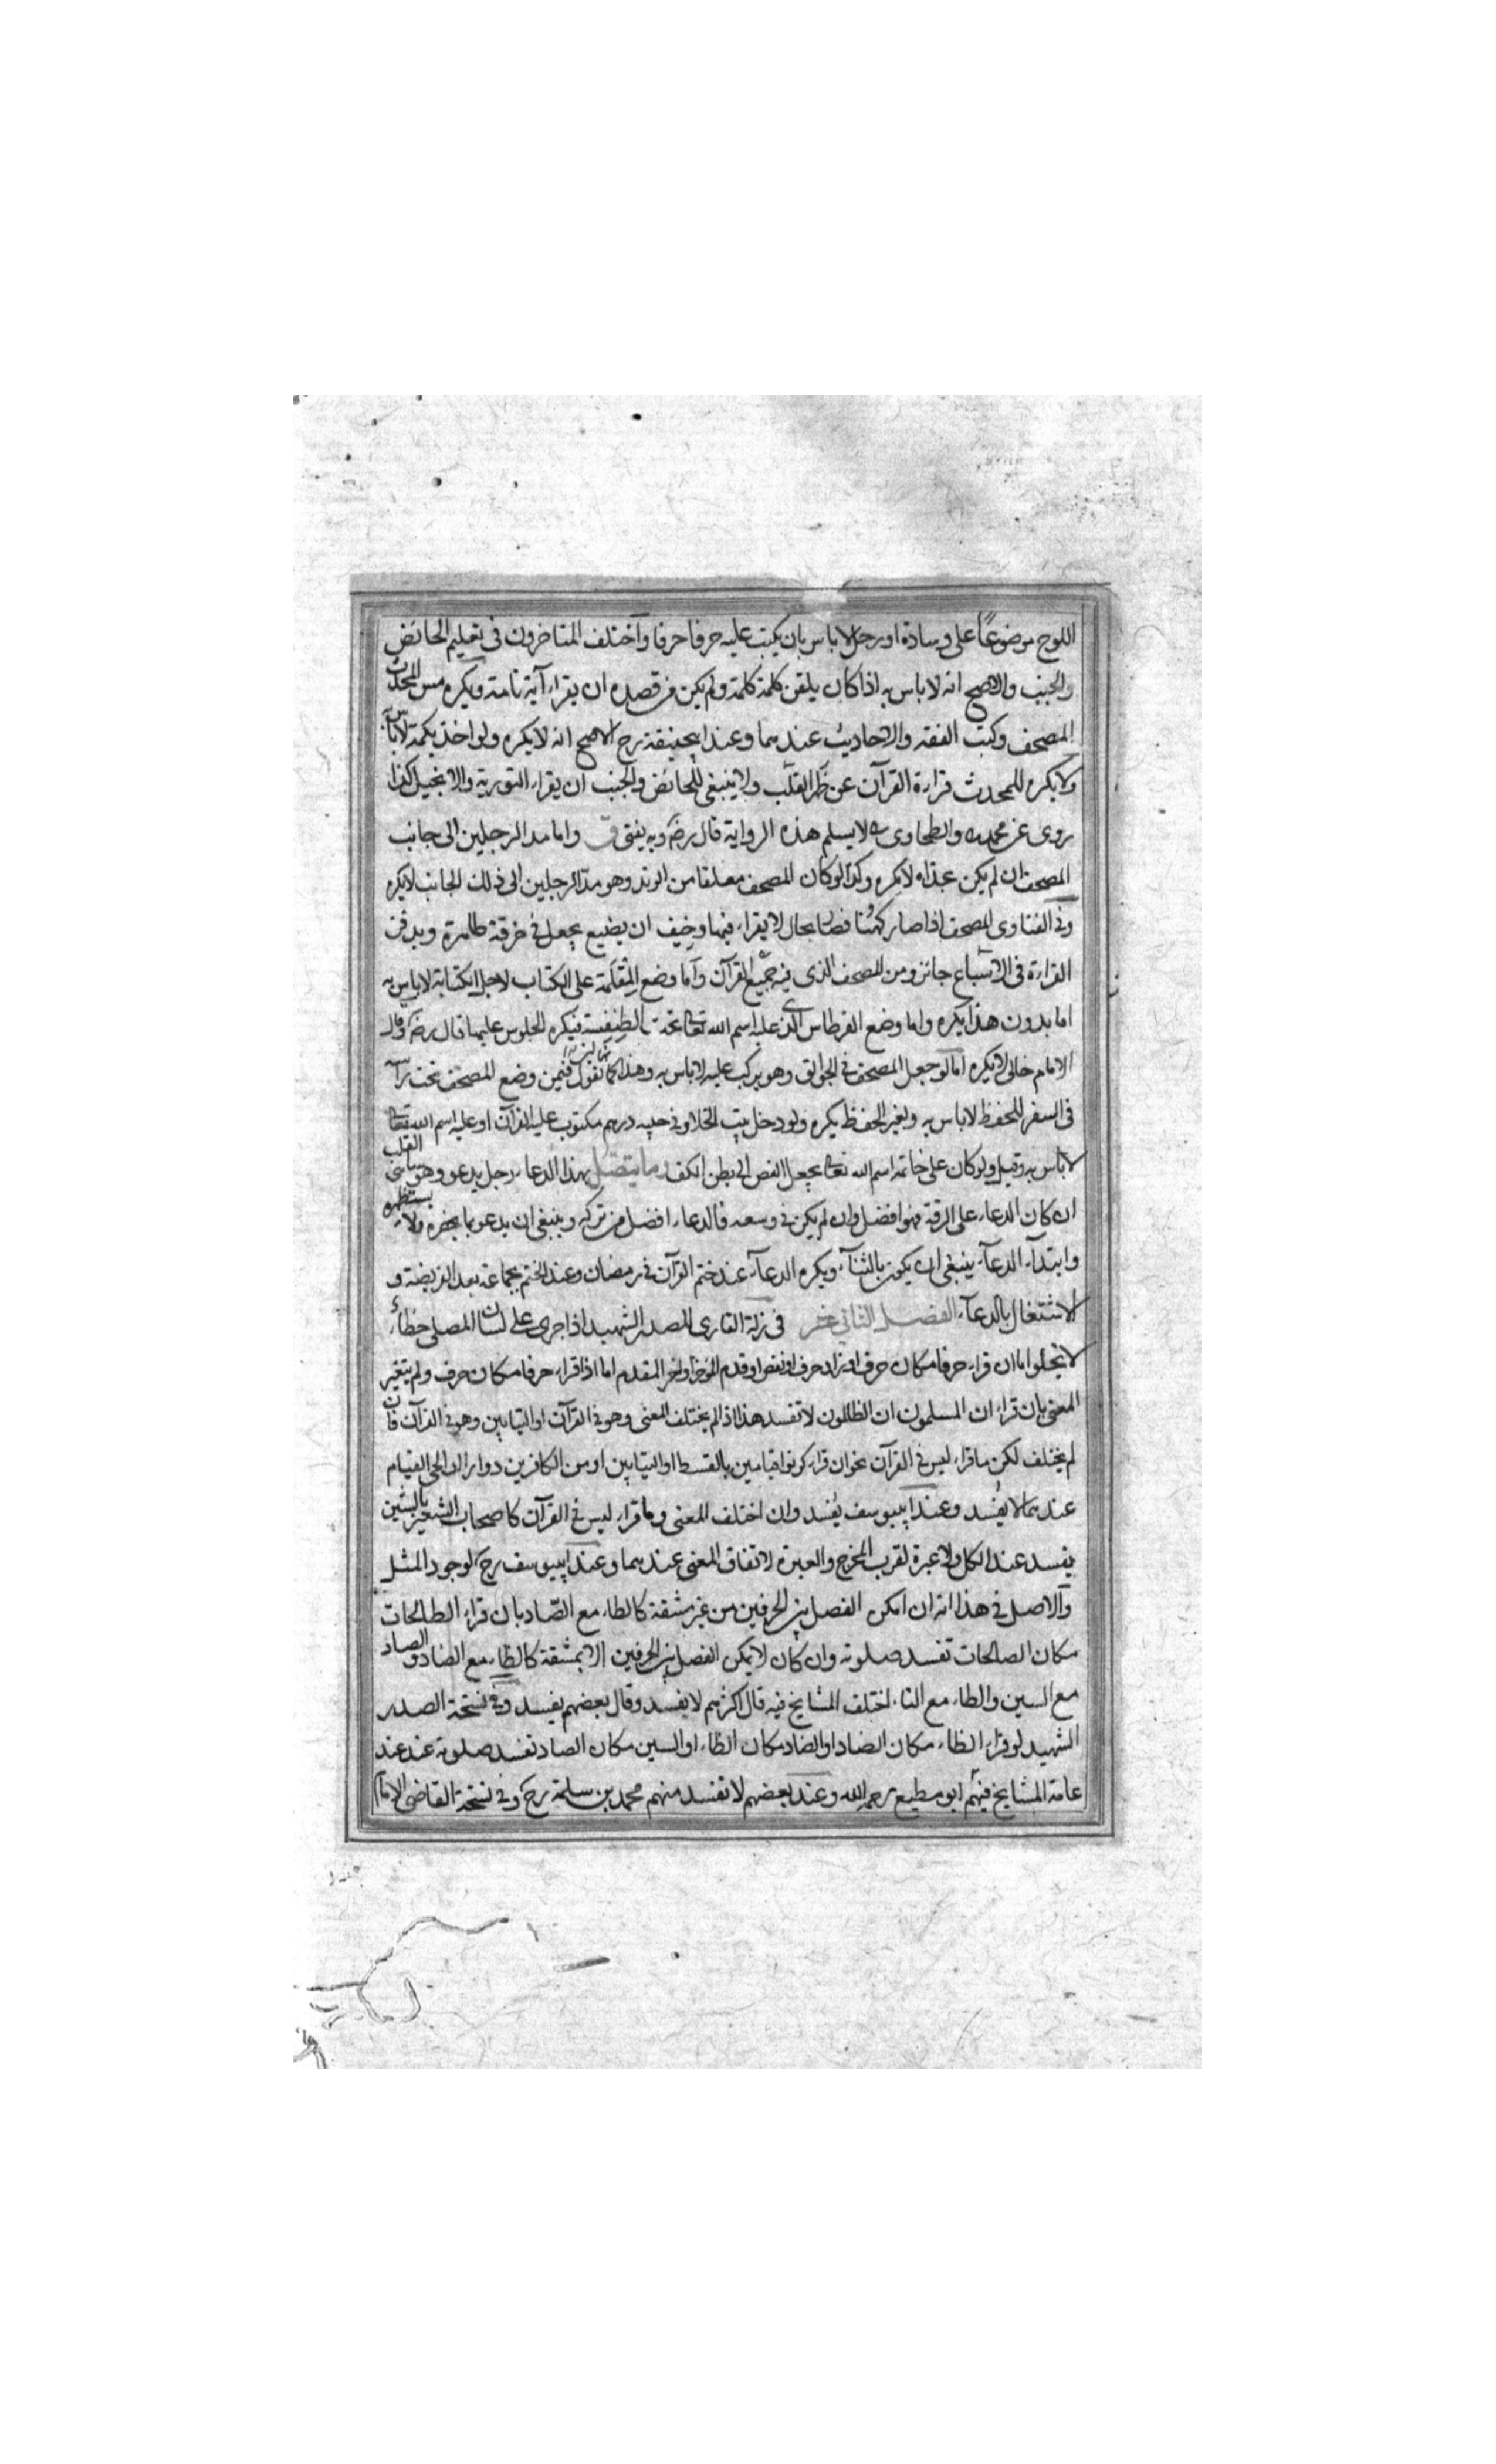 اللوح موضوعا على وسادة او رحل لا باس بان يكتب عليه حرفا حرفا واختلف المتاخرون فى تعليم الحائض
والجنب والاصح انه لا باس به اذا كان يلقن كلمة كلمة ولم يكن من قصده ان يقراء آية تامة ويكره مس المحدث
المصحف وكتب الفقه والاحاديث عندهما وعند ابيحنيفة رح الاصح انه لا يكره ولو اخذ بكمه لا باس
ولا يكره للمحدث قراءة القرآن عن ظهر القلب ولا ينبغى للحائض والجنب ان يقراء التورية والانجيل كذا
روى عن محمد والطحاوى لا يسلم هذه الرواية قال رض وبه يفتى واما مد الرجلين الى جانب
المصحف ان لم يكن بحذاه لا يكره وكذا لو كان المصحف معلقا من الوتد وهو مد الرجلين الى ذلك الجانب لا يكره
وفى الفتاوى المصحف اذا صار كهنا فصار بحال لا يقراء فيها وخيف ان يضيع يجعل فى خرقة طاهرة ويدفن
القراءة فى الاسباع جائز ومن المصحف الذى فيه جميع القرآن واما وضع المقلمة على الكتاب لاجل الكتابة لا باس به
اما بدون هذا يكره واما وضع القرطاس الذى عليه اسم الله تعالى تحت الطنفسة فيكره الجلوس عليها قال رض وقال
الامام خالى لا يكره اما لو جعل المصحف فى الجوالق وهو يركب عليه لا باس به وهذا كما نقول فيمن وضع المصحف تحت راسه
فى السفر للحفظ لا باس به ولغير الحفظ يكره ولو دخل بيت الخلا وفى جيبه درهم مكتوب عليه القرآن او عليه اسم الله تعالى
لا باس به وقيل ولو كان على خاتمه اسم الله تعالى يجعل الفص الى بطن الكف وما يتصل بهذا الدعاء رجل يدعو وهو ساهى القلب
ان كان الدعاء على الرقة فهو افضل وان لم يكن فى وسعه فالدعاء افضل من تركه وينبغى ان يدعو بما يحضره ولا يستظهره
وابتداء الدعاء ينبغى ان يكون بالثناء ويكره الدعاء عند ختم القرآن فى رمضان وعند الختم بجماعة بعد الفريضة و
الاشتغال بالدعاء الفصل الثانى عشر فى زلة القارى الصدر الشهيد اذا جرى على لسان المصلى خطاء
لا يخلو اما ان قراء حرفا مكان حرف او زاد حرف او نقص او قدم المؤخر او اخر المقدم اما اذا قراء حرفا مكان حرف ولم يتغير
المعنى بان قراء ان المسلمون ان الظالمون لا تفسد هذا اذا لم يختلف المعنى وهو فى القرآن او التيابين وهو فى القرآن فان
لم يختلف لكن ما قراء ليس فى القرآن نحو ان قراء كونوا قيامين بالقسط او التيابين او من الكافرين دوارا او الحى القيام
عندهما لا يفسد وعند ابييوسف يفسد وان اختلف المعنى وما قراء ليس فى القرآن كاصحاب الشعير بالشين
يفسد عند الكل ولا عبرة لقرب المخرج والعبرة لاتفاق المعنى عندهما وعند ابييوسف رح لوجود المثل
والاصل فى هذا انه ان امكن الفصل بين الحرفين من غير مشقة كالطاء مع الصاد بان قراء الطالحات
مكان الصالحات تفسد صلوته وان كان لا يمكن الفصل بين الحرفين الا بمشقة كالظاء مع الضاد والصاد
مع السين والطاء مع التاء اختلف المشايخ فيه قال اكثرهم لا يفسد وقال بعضهم يفسد وفى نسخة الصدر
الشهيد لو قراء الظاء مكان الضاد او الضاد مكان الظاء او السين مكان الصاد تفسد صلوته عند عند
عامة المشايخ فيهم ابو مطيع رحمه الله وعند بعضهم لا تفسد منهم محمد بن سلمة رح وفى نسخة القاضى الامام